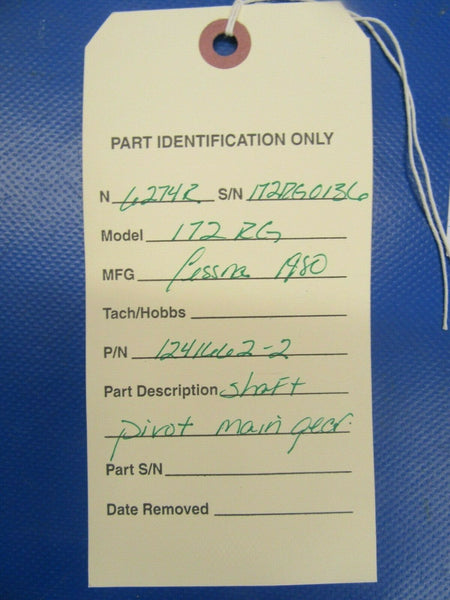 PART IDENTIFICATION ONLY
N 6274R S/N 172RG0136
Model 172 RG
MFG Cessna 1980
Tach/Hobbs
P/N 1241662-2
Part Description shaft
pivot main gear
Part S/N
Date Removed